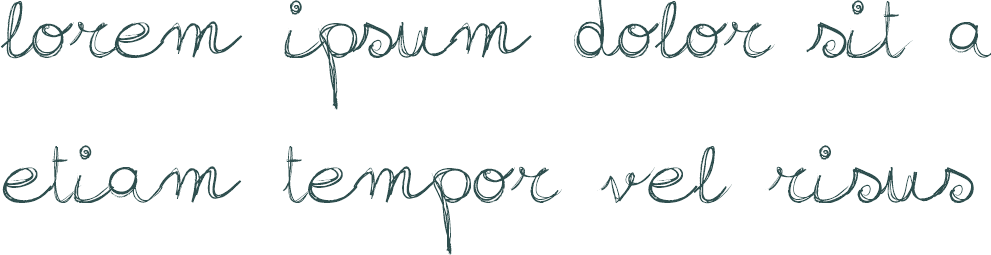 lorem ipsum dolor sit a
etiam tempor vel risus